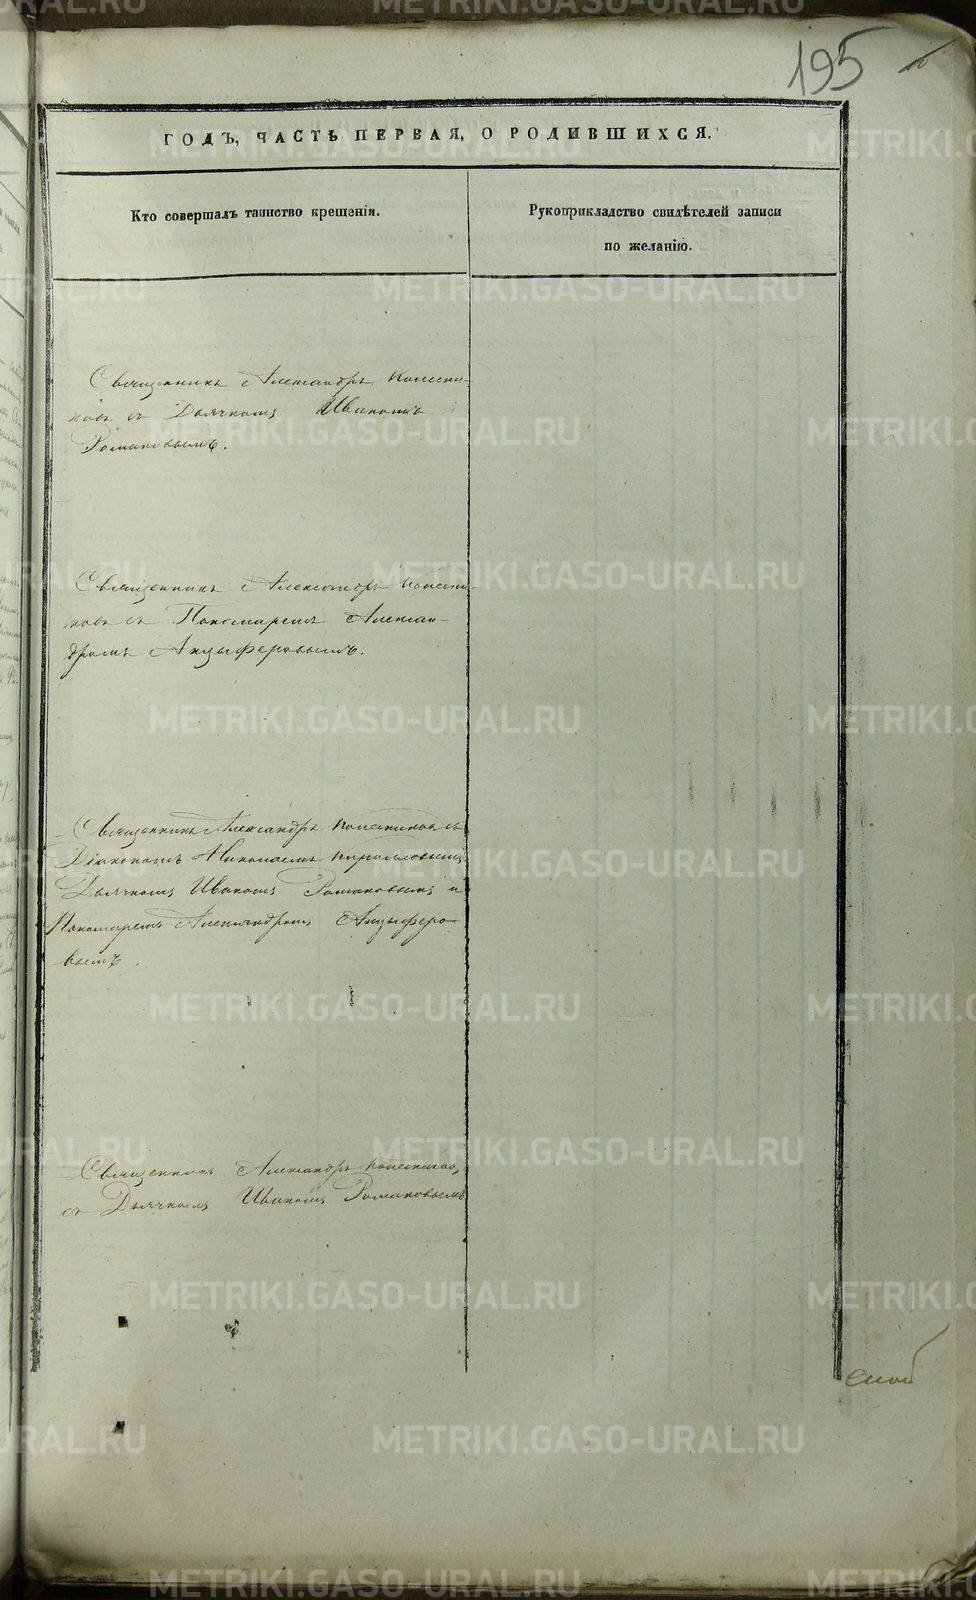 195
ГОДЪ, ЧАСТЬ ПЕРВАЯ, О РОДИВШИХСЯ.
Кто совершалъ таинство крещенія.
Рукоприкладство свидѣтелей записи
по желанію.
Священникъ Александръ Колесни-
ковъ съ Дьячкомъ Иваномъ
Романовымъ.
Священникъ Александръ Колесни-
ковъ съ Пономаремъ Алексан-
дромъ Анцыферовымъ.
Священникъ Александръ Колесниковъ съ
Діакономъ Николаемъ Кирилловымъ,
Дьячкомъ Иваномъ Романовымъ и
Пономаремъ Александромъ Анцыферо-
вымъ.
Священникъ Александръ Колесниковъ,
съ Дьячкомъ Иваномъ Романовымъ
METRIKI.GASO-URAL.RU